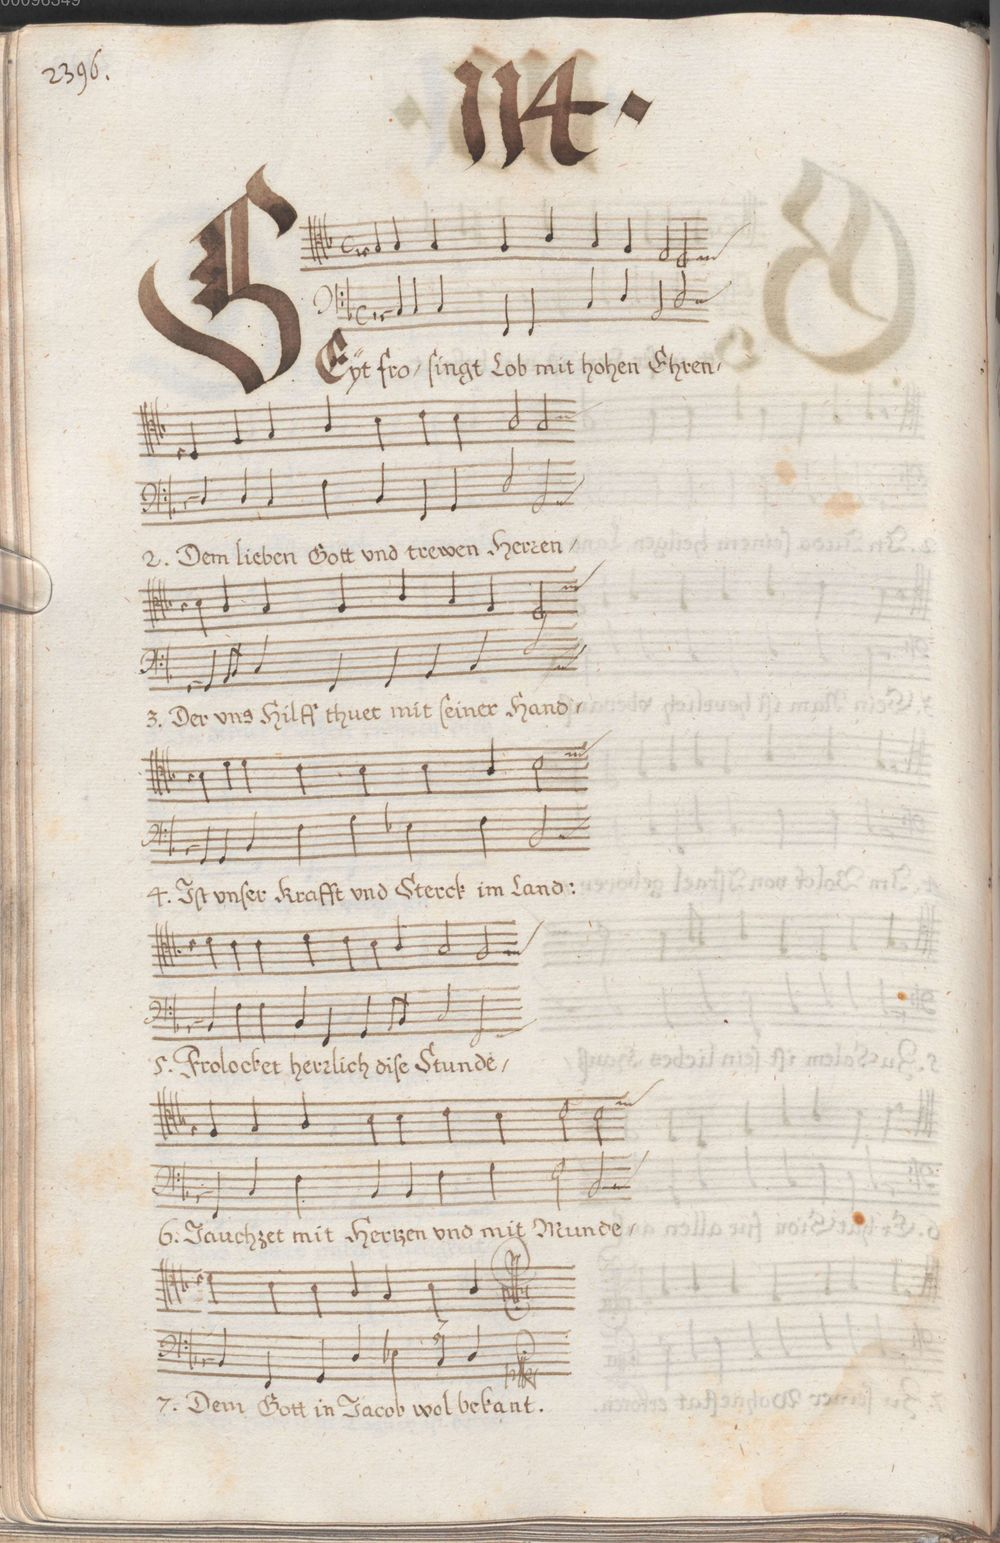 00096349
2396.
114.
SEyt fro / singt Lob mit hohen Ehren /
2. Dem lieben Gott vnd trewen Herren /
3. Der vns Hilff thuet mit seiner Hand /
4. Ist vnser Krafft vnd Sterck im Land:
5. Frolocket herzlich dise Stunde /
6. Jauchzet mit Hertzen vnd mit Munde
7. Dem Gott in Jacob wol bekant.